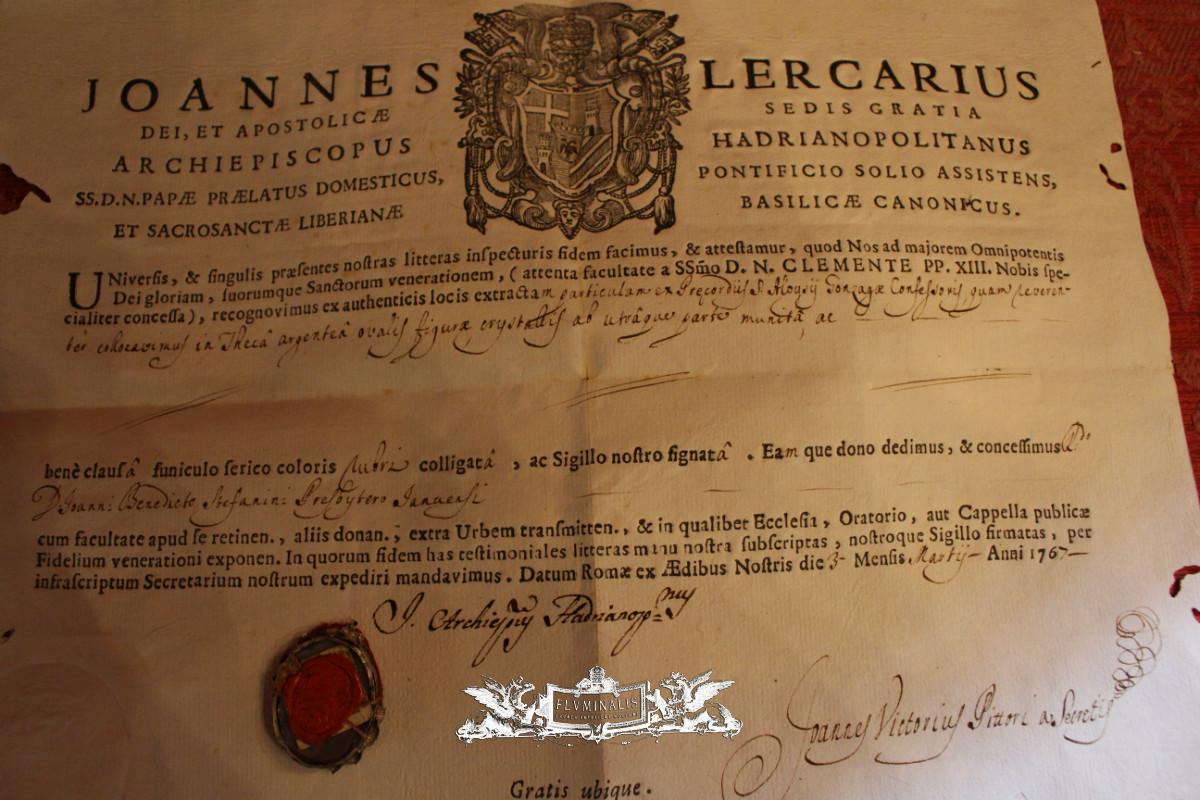 JOANNES LERCARIUS
DEI, ET APOSTOLICÆ SEDIS GRATIA
ARCHIEPISCOPUS HADRIANOPOLITANUS
SS.D.N.PAPÆ PRÆLATUS DOMESTICUS, PONTIFICIO SOLIO ASSISTENS,
ET SACROSANCTÆ LIBERIANÆ BASILICÆ CANONICUS.
UNiverſis, & ſingulis præſentes noſtras litteras inſpecturis fidem facimus, & atteſtamur, quod Nos ad majorem Omnipotentis
Dei gloriam, ſuorumque Sanctorum venerationem, (attenta facultate a SSm̃o D. N. CLEMENTE PP. XIII. Nobis ſpe-
cialiter conceſſa), recognovimus ex authenticis locis extractam particulam ex Præcordijs S. Aloysij Gonzagæ Confessoris, quam reveren-
ter collocavimus in Thecâ argenteâ ovalis figuræ crystallis ab utrâque parte munitâ, ac
benè clauſâ funiculo ſerico coloris rubri colligatâ, ac Sigillo noſtro ſignatâ. Eamque dono dedimus, & conceſſimus
D. Joanni Benedicto Stefanini Presbytero Januensi
cum facultate apud ſe retinen., aliis donan., extra Urbem tranſmitten., & in qualibet Eccleſia, Oratorio, aut Cappella publicæ
Fidelium venerationi exponen. In quorum fidem has teſtimoniales litteras manu noſtra ſubſcriptas, noſtroque Sigillo firmatas, per
infraſcriptum Secretarium noſtrum expediri mandavimus. Datum Romæ ex Ædibus Noſtris die 3 Menſis Martij Anni 1767
J. Archiepus Hadrianopnus
Joannes Victorius Pittori a Secretis
FLVMINALIS
Gratis ubique.